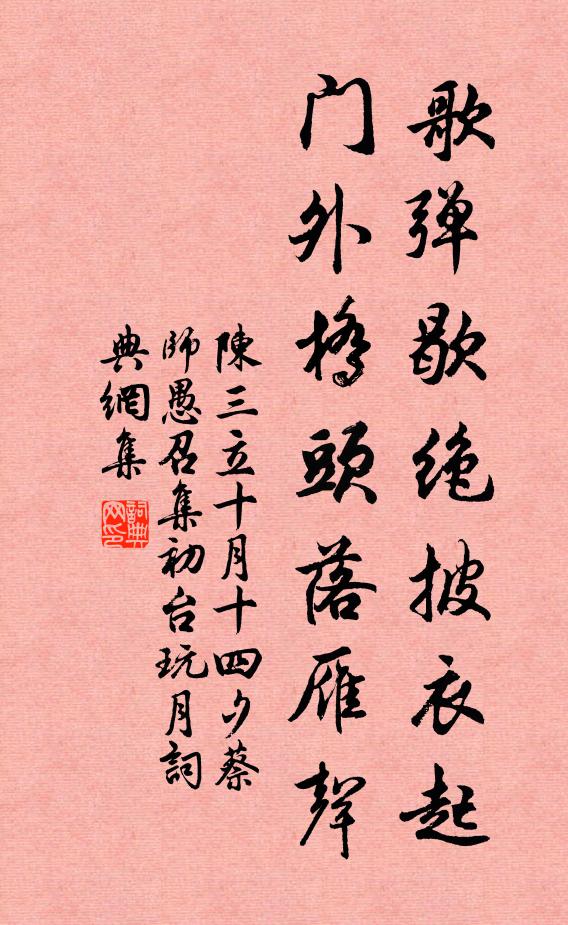 歌弹歇绝披衣起
门外橋頭落雁聲
陳三立十月十四夕蔡
師愚召集初台玩月詞
典網集
詞典
网印